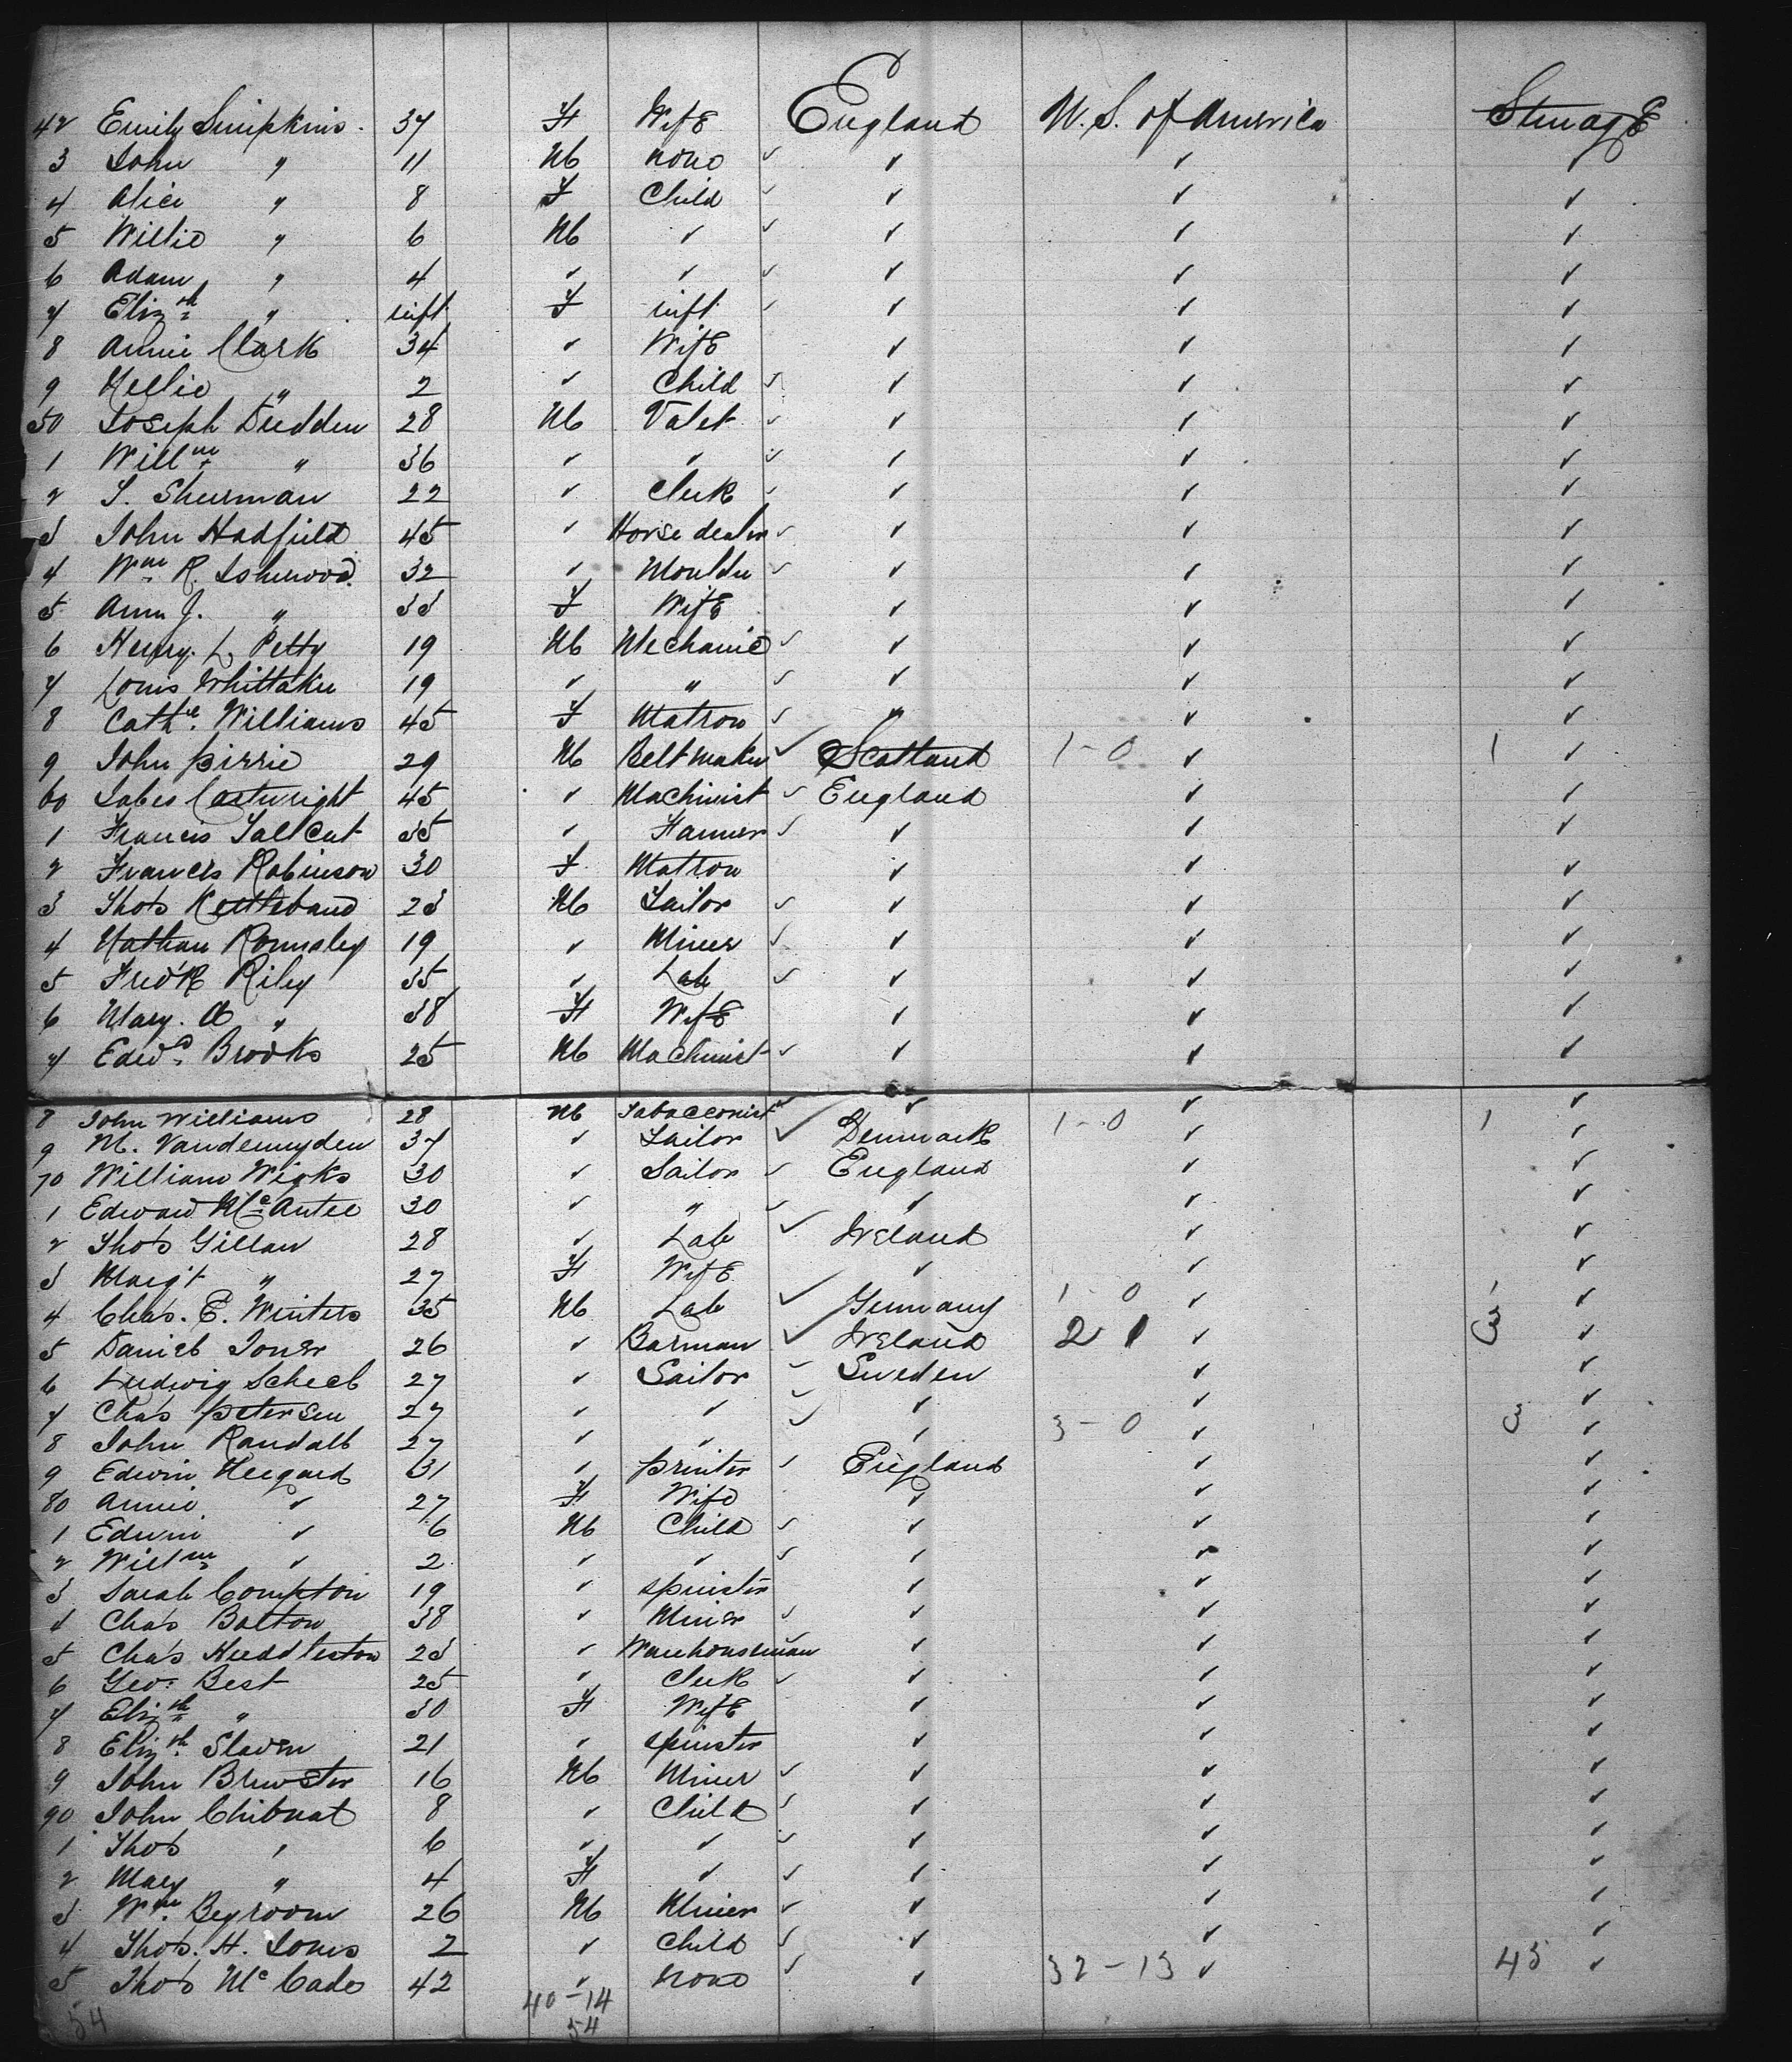 42 Emily Simpkins. 37 F Wife England U.S. of America Steerage
3 John " 11 M none ✓ ✓ ✓ ✓
4 Alice " 8 F Child ✓ ✓ ✓ ✓
5 Willie " 6 M ✓ ✓ ✓ ✓ ✓
6 Adam " 4 ✓ ✓ ✓ ✓ ✓ ✓
7 Elizth " inft F inft ✓ ✓ ✓ ✓
8 Annie Clark 34 ✓ Wife ✓ ✓ ✓
9 Nellie " 2 ✓ Child ✓ ✓ ✓ ✓
50 Joseph Dudden 28 M Valet ✓ ✓ ✓ ✓
1 Willm " 36 ✓ ✓ ✓ ✓ ✓ ✓
2 S. Shurman 22 ✓ Clerk ✓ ✓ ✓ ✓
3 John Hadfield 45 ✓ Horse dealer ✓ ✓ ✓ ✓
4 Wm R. Isherwood 32 ✓ Moulder ✓ ✓ ✓ ✓
5 Ann J. " 33 F Wife ✓ ✓ ✓
6 Henry. L. Petty 19 M Mechanic ✓ ✓ ✓ ✓
7 Louis Whittaker 19 ✓ " ✓ ✓ ✓ ✓
8 Cathe. Williams 45 F Matron ✓ " ✓ ✓
9 John Pirrie 29 M Beltmaker ✓ Scotland 1-0 ✓ 1 ✓
60 Jabes Cartwright 45 ✓ Machinist ✓ England ✓ ✓
1 Francis Tallcut 35 ✓ Farmer ✓ ✓ ✓ ✓
2 Frances Robinson 30 F Matron ✓ ✓ ✓
3 Thos Kettleband 23 M Tailor ✓ ✓ ✓ ✓
4 Nathan Romsley 19 ✓ Miner ✓ ✓ ✓ ✓
5 Fred'k Riley 35 ✓ Lab ✓ ✓ ✓ ✓
6 Mary. A " 38 F Wife ✓ ✓ ✓
7 Edwd. Brooks 25 M Machinist ✓ ✓ ✓ ✓
8 John Williams 28 M Tobacconist ✓ ✓ ✓ ✓
9 M. 37 ✓ Tailor ✓ Denmark 1-0 ✓ 1 ✓
70 William Wicks 30 ✓ Sailor ✓ England ✓ ✓
1 Edward McAntee 30 ✓ " ✓ ✓ ✓ ✓
2 Thos Gillan 28 ✓ Lab ✓ Ireland ✓ ✓
3 Marg't " 27 F Wife ✓ ✓ ✓
4 Chas. E. Winters 35 M Lab ✓ Germany 1-0 ✓ 1 ✓
5 Daniel Jones 26 ✓ Barman ✓ Ireland 2 1 ✓ 3 ✓
6 Ludwig Scheel 27 ✓ Sailor ✓ Sweden ✓ ✓
7 Chas Petersen 27 ✓ ✓ ✓ ✓ ✓ ✓
8 John Randall 27 ✓ ✓ ✓ ✓ 3-0 ✓ 3 ✓
9 Edwin Heegard 31 ✓ Printer ✓ England ✓ ✓
80 Annie ✓ 27 F Wife ✓ ✓ ✓
1 Edwin ✓ 6 M Child ✓ ✓ ✓ ✓
2 Willm ✓ 2 ✓ ✓ ✓ ✓ ✓ ✓
3 Sarah Compton 19 ✓ Spinster ✓ ✓ ✓
4 Chas Bolton 38 ✓ Miner ✓ ✓ ✓ ✓
5 Chas Huddleston 23 ✓ Warehouseman ✓ ✓ ✓
6 Geo: Best 25 ✓ Clerk ✓ ✓ ✓ ✓
7 Elizth " 30 F Wife ✓ ✓ ✓
8 Elizth. Slaven 21 ✓ Spinster ✓ ✓ ✓
9 John Brewster 16 M Miner ✓ ✓ ✓ ✓
90 John Chibnal 8 ✓ Child ✓ ✓ ✓ ✓
1 Thos " 6 ✓ ✓ ✓ ✓ ✓ ✓
2 Mary " 4 F ✓ ✓ ✓ ✓ ✓
3 Wm. Begroom 26 M Miner ✓ ✓ ✓ ✓
4 Thos. H. Jones 2 ✓ Child ✓ ✓ ✓ ✓
5 Thos McCade 42 ✓ None ✓ ✓ 32-13 ✓ 45 ✓
54 40-14
54